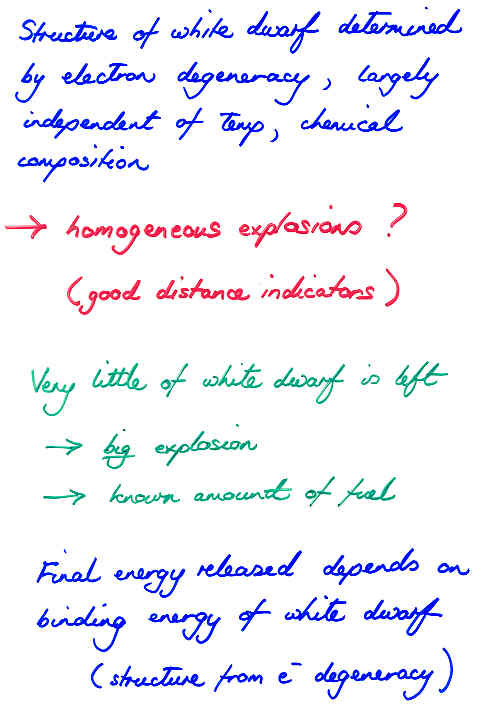 Structure of white dwarf determined
by electron degeneracy, largely
independent of Temp, chemical
composition
→ homogeneous explosions ?
(good distance indicators)
Very little of white dwarf is left
→ big explosion
→ known amount of fuel
Final energy released depends on
binding energy of white dwarf
(structure from e⁻ degeneracy)